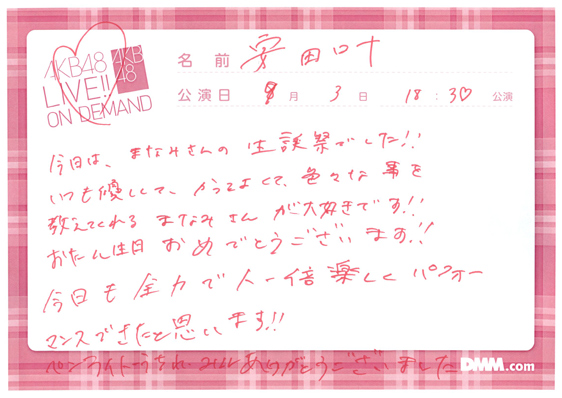 AKB48
LIVE!!
ON DEMAND
AKB
48
名前 安田叶
公演日 8月3日 18:30公演
今日は、まなみさんの生誕祭でした!!
いつも優しくて、かっこよくて、色々な事を
教えてくれるまなみさんが大好きです!!
おたん生日おめでとうございます!!
今日も全力で人一倍楽しくパフォー
マンスできたと思います!!
ペンライト うちわ ありがとうございました
DMM.com